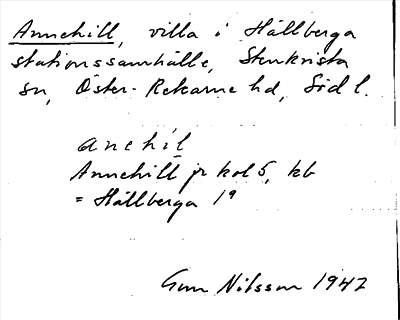 Annehill, villa i Hållberga
stationssamhälle, Stenkvista
sn, Öster-Rekarne hd, Södl.
anehil
Annehill jr kol 5, kb
= Hållberga 1⁹
Gun Nilsson 1947